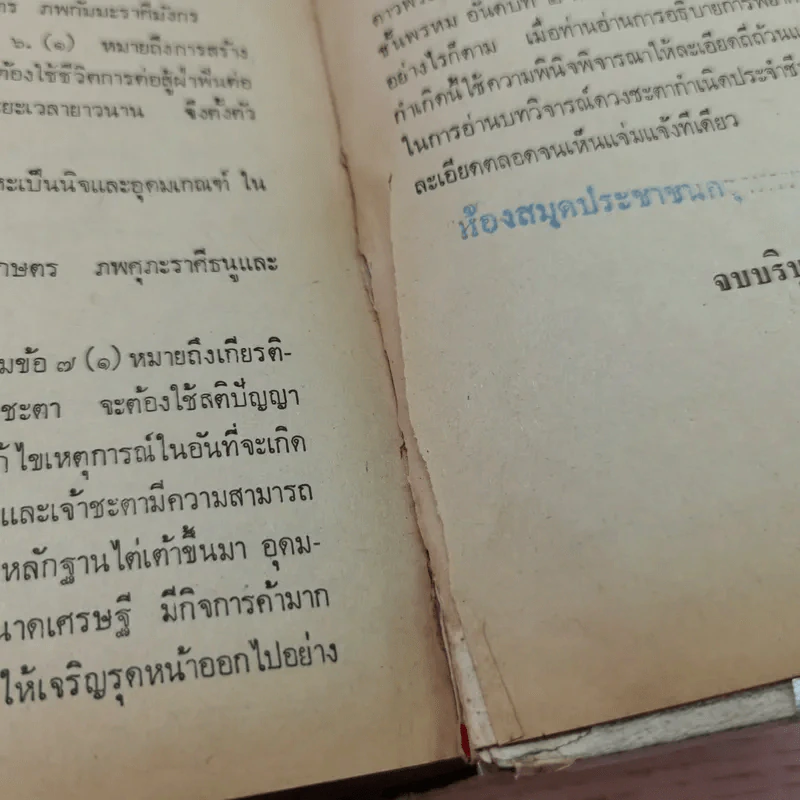 ภพกัมมะราศีมังกร
๖. (๑) หมายถึงการสร้าง
ต้องใช้ชีวิตการต่อสู้ฝ่าฟันต่อ
ระยะเวลายาวนาน จึงตั้งตัว
ะเป็นนิจและอุดมเกณฑ์ ใน
กษตร ภพศุภะราศีธนูและ
มข้อ ๗ (๑) หมายถึงเกียรติ-
ชะตา จะต้องใช้สติปัญญา
ไขเหตุการณ์ในอันที่จะเกิด
และเจ้าชะตามีความสามารถ
หลักฐานไต่เต้าขึ้นมา อุดม-
นาดเศรษฐี มีกิจการค้ามาก
ให้เจริญรุดหน้าออกไปอย่าง
ชั้นพรหม อันดับที่
อย่างไรก็ตาม เมื่อท่านอ่านการอธิบายการพยาก
กำเกิดนี้ใช้ความพินิจพิจารณาให้ละเอียดถี่ถ้วนแ
ในการอ่านบทวิจารณ์ดวงชะตากำเนิดประจำชี
ละเอียดตลอดจนเห็นแจ่มแจ้งทีเดียว
ห้องสมุดประชาชน
จบบริบู